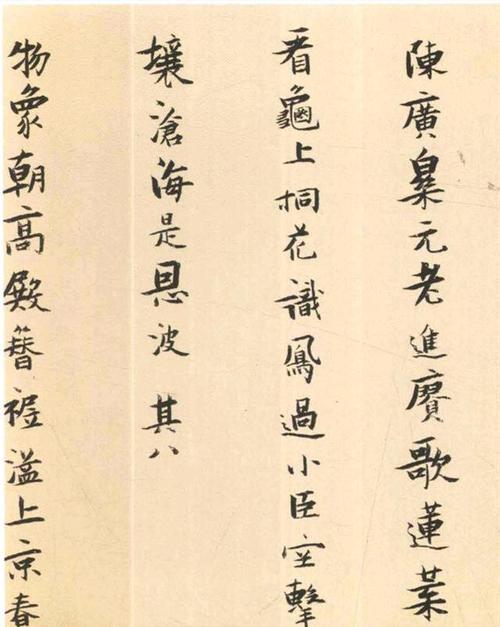 陳廣皋元老進賡歌蓮葉
看龜上桐花識鳳過小臣空擊
壤滄海是恩波 其八
物象朝高殿簪裾溢上京春